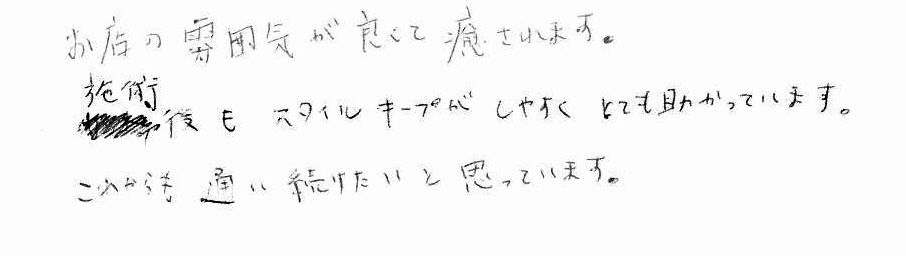 お店の雰囲気が良くて癒されます。
施術後も スタイルキープが しやすく とても助かっています。
これからも 通い続けたいと思っています。